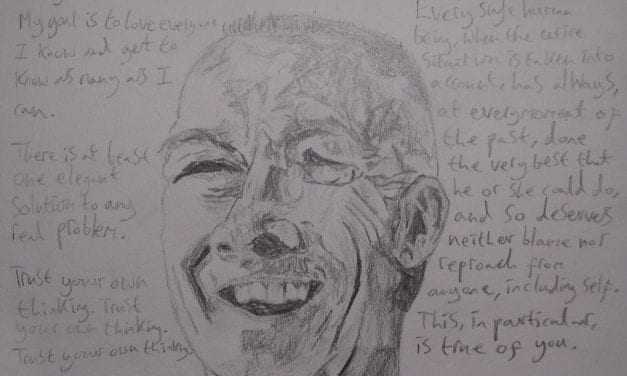 My goal is to love everyone
I know and get to
know as many as I
can.
There is at least
one elegant
solution to any
real problem.
Trust your own
thinking. Trust
your own thinking.
Trust your own thinking.
Every single human
being, when the entire
situation is taken into
account, has always,
at every moment of
the past, done
the very best that
he or she could do,
and so deserves
neither blame nor
reproach from
anyone, including self.
This, in particular,
is true of you.